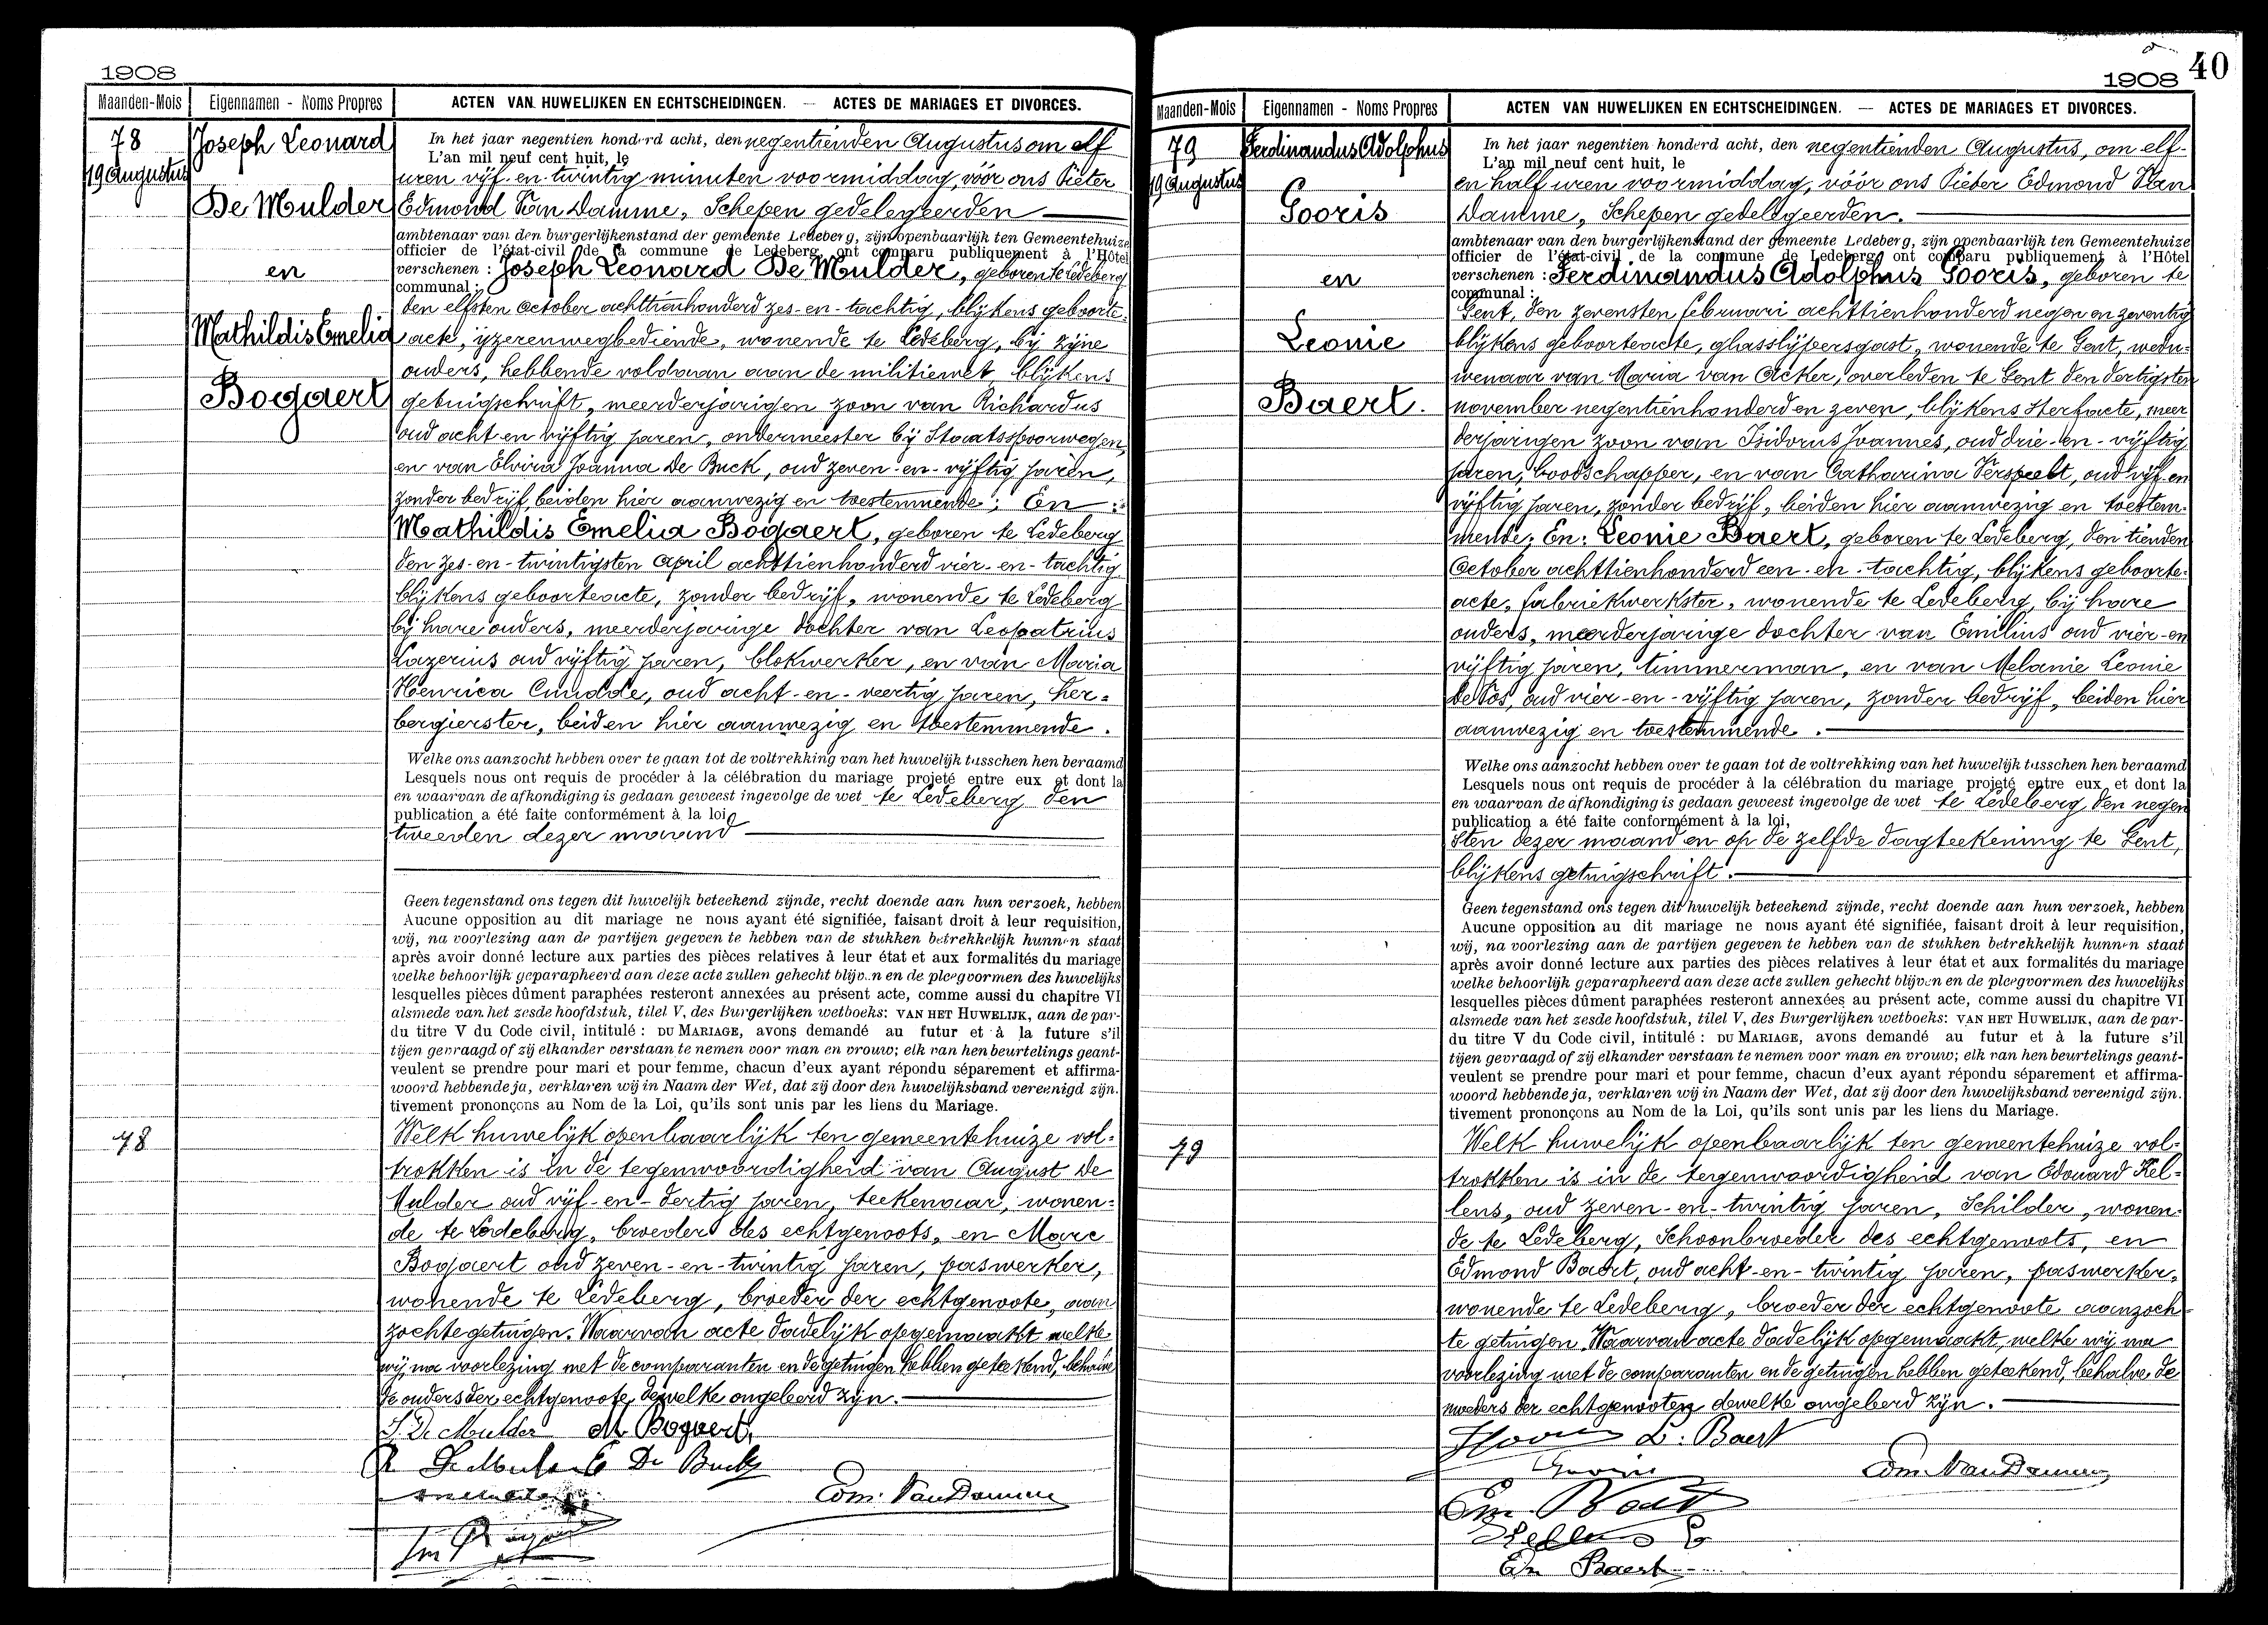 1908
Maanden-Mois
Eigennamen - Noms Propres
ACTEN VAN HUWELIJKEN EN ECHTSCHEIDINGEN. — ACTES DE MARIAGES ET DIVORCES.
78
19 Augustus
Joseph Leonard
De Mulder
en
Mathildis Emelia
Bogaert
In het jaar negentien honderd acht, den negentienden Augustus om elf
L'an mil neuf cent huit, le
uren vijf-en-twintig minuten voormiddag, vóór ons Pieter
Edmond Van Damme, Schepen gedelegeerden
ambtenaar van den burgerlijkenstand der gemeente Ledeberg, zijn openbaarlijk ten Gemeentehuize
officier de l'état-civil de la commune de Ledeberg, ont comparu publiquement à l'Hôtel
verschenen : Joseph Leonard De Mulder, geboren te Ledeberg
communal :
den elfsten October achttienhonderd zes-en-tachtig, blijkens geboorte-
acte, ijzerenwegbediende, wonende te Ledeberg, bij zijne
ouders, hebbende voldaan aan de militiewet blijkens
getuigschrift, meerderjarigen zoon van Richardus
oud acht en vijftig jaren, ondermeester bij Staatsspoorwegen,
en van Elviria Joanna De Buck, oud zeven-en-vijftig jaren,
zonder bedrijf, beiden hier aanwezig en toestemmende; En :
Mathildis Emelia Bogaert, geboren te Ledeberg
den zes-en-twintigsten April achttienhonderd vier-en-tachtig
blijkens geboorteacte, zonder bedrijf, wonende te Ledeberg
bij hare ouders, meerderjarige dochter van Leopatrius
Lazerius oud vijftig jaren, blokwerker, en van Maria
Henrica Cnudde, oud acht-en-veertig jaren, her=
bergierster, beiden hier aanwezig en toestemmende.
Welke ons aanzocht hebben over te gaan tot de voltrekking van het huwelijk tusschen hen beraamd
Lesquels nous ont requis de procéder à la célébration du mariage projeté entre eux et dont la
en waarvan de afkondiging is gedaan geweest ingevolge de wet te Ledeberg den
publication a été faite conformément à la loi,
tweeden dezer maand
Geen tegenstand ons tegen dit huwelijk beteekend zijnde, recht doende aan hun verzoek, hebben
Aucune opposition au dit mariage ne nous ayant été signifiée, faisant droit à leur requisition,
wij, na voorlezing aan de partijen gegeven te hebben van de stukken betrekkelijk hunnen staat
après avoir donné lecture aux parties des pièces relatives à leur état et aux formalités du mariage
welke behoorlijk geparapheerd aan deze acte zullen gehecht blijven en de pleegvormen des huwelijks
lesquelles pièces dûment paraphées resteront annexées au présent acte, comme aussi du chapitre VI
alsmede van het zesde hoofdstuk, titel V, des Burgerlijken wetboeks: VAN HET HUWELIJK, aan de par-
du titre V du Code civil, intitulé : DU MARIAGE, avons demandé au futur et à la future s'il
tijen gevraagd of zij elkander verstaan te nemen voor man en vrouw; elk van hen beurtelings geant-
veulent se prendre pour mari et pour femme, chacun d'eux ayant répondu séparement et affirma-
woord hebbende ja, verklaren wij in Naam der Wet, dat zij door den huwelijksband vereenigd zijn.
tivement prononçons au Nom de la Loi, qu'ils sont unis par les liens du Mariage.
78
Welk huwelijk openbaarlijk ten gemeentehuize vol-
trokken is in de tegenwoordigheid van August De
Mulder oud vijf-en-dertig jaren, teekenaar, wonen=
de te Ledeberg, broeder des echtgenoots, en Marc
Bogaert oud zeven-en-twintig jaren, paswerker,
wonende te Ledeberg, broeder der echtgenoote, aan
zochte getuigen. Waarvan acte dadelijk opgemaakt welke
wij, na voorlezing met de comparanten en de getuigen hebben geteekend, behalve
de ouders der echtgenoote dewelke ongeleerd zijn.
J. De Mulder M. Bogaert,
R De Mulder E De Buck
Edm. Van Damme
1908
40
Maanden-Mois
Eigennamen - Noms Propres
ACTEN VAN HUWELIJKEN EN ECHTSCHEIDINGEN. — ACTES DE MARIAGES ET DIVORCES.
79
19 Augustus
Ferdinandus Adolphus
Gooris
en
Leonie
Baert.
In het jaar negentien honderd acht, den negentienden Augustus, om elf-
L'an mil neuf cent huit, le
en half uren voormiddag, vóór ons Pieter Edmond Van
Damme, Schepen gedelegeerden.
ambtenaar van den burgerlijkenstand der gemeente Ledeberg, zijn openbaarlijk ten Gemeentehuize
officier de l'état-civil de la commune de Ledeberg ont comparu publiquement à l'Hôtel
verschenen : Ferdinandus Adolphus Gooris, geboren te
communal :
Gent, den zevensten februari achttienhonderd negen en zeventig
blijkens geboorteacte, glasslijpersgast, wonende te Gent, wedu-
wenaar van Maria van Acker, overleden te Gent den dertigsten
november negentienhonderd en zeven, blijkens sterfacte, meer
derjarigen zoon van Isidorus Joannes, oud drie-en-vijftig
jaren, boodschapper, en van Catharina Verspeelt, oud vijf en
vijftig jaren, zonder bedrijf, beiden hier aanwezig en toestem-
mende; En: Leonie Baert, geboren te Ledeberg, den tienden
October achttienhonderd een-en-tachtig, blijkens geboorte-
acte, fabriekwerkster, wonende te Ledeberg, bij hare
ouders, meerderjarige dochter van Emilius oud vier-en
vijftig jaren, timmerman, en van Melanie Leonie
De Vos, oud vier-en-vijftig jaren, zonder bedrijf, beiden hier
aanwezig en toestemmende.
Welke ons aanzocht hebben over te gaan tot de voltrekking van het huwelijk tusschen hen beraamd
Lesquels nous ont requis de procéder à la célébration du mariage projeté entre eux et dont la
en waarvan de afkondiging is gedaan geweest ingevolge de wet te Ledeberg den negen
publication a été faite conformément à la loi,
sten dezer maand en op de zelfde dagteekening te Gent,
blijkens getuigschrift.
Geen tegenstand ons tegen dit huwelijk beteekend zijnde, recht doende aan hun verzoek, hebben
Aucune opposition au dit mariage ne nous ayant été signifiée, faisant droit à leur requisition,
wij, na voorlezing aan de partijen gegeven te hebben van de stukken betrekkelijk hunnen staat
après avoir donné lecture aux parties des pièces relatives à leur état et aux formalités du mariage
welke behoorlijk geparapheerd aan deze acte zullen gehecht blijven en de pleegvormen des huwelijks
lesquelles pièces dûment paraphées resteront annexées au présent acte, comme aussi du chapitre VI
alsmede van het zesde hoofdstuk, titel V, des Burgerlijken wetboeks: VAN HET HUWELIJK, aan de par-
du titre V du Code civil, intitulé : DU MARIAGE, avons demandé au futur et à la future s'il
tijen gevraagd of zij elkander verstaan te nemen voor man en vrouw; elk van hen beurtelings geant-
veulent se prendre pour mari et pour femme, chacun d'eux ayant répondu séparement et affirma-
woord hebbende ja, verklaren wij in Naam der Wet, dat zij door den huwelijksband vereenigd zijn.
tivement prononçons au Nom de la Loi, qu'ils sont unis par les liens du Mariage.
79
Welk huwelijk openbaarlijk ten gemeentehuize vol-
trokken is in de tegenwoordigheid van Edouard Kel=
lens, oud zeven-en-twintig jaren, Schilder, wonen-
de te Ledeberg, Schoonbroeder des echtgenoots, en
Edmond Baert, oud acht-en-twintig jaren, paswerker,
wonende te Ledeberg, broeder der echtgenoote aanzoch-
te getuigen. Waarvan acte dadelijk opgemaakt, welke wij na
voorlezing met de comparanten en de getuigen hebben geteekend, behalve de
moeders der echtgenooten dewelke ongeleerd zijn.
L. Baert
Gooris
Edm. Van Damme
Em. Baert
Kellens E
Ed Baert